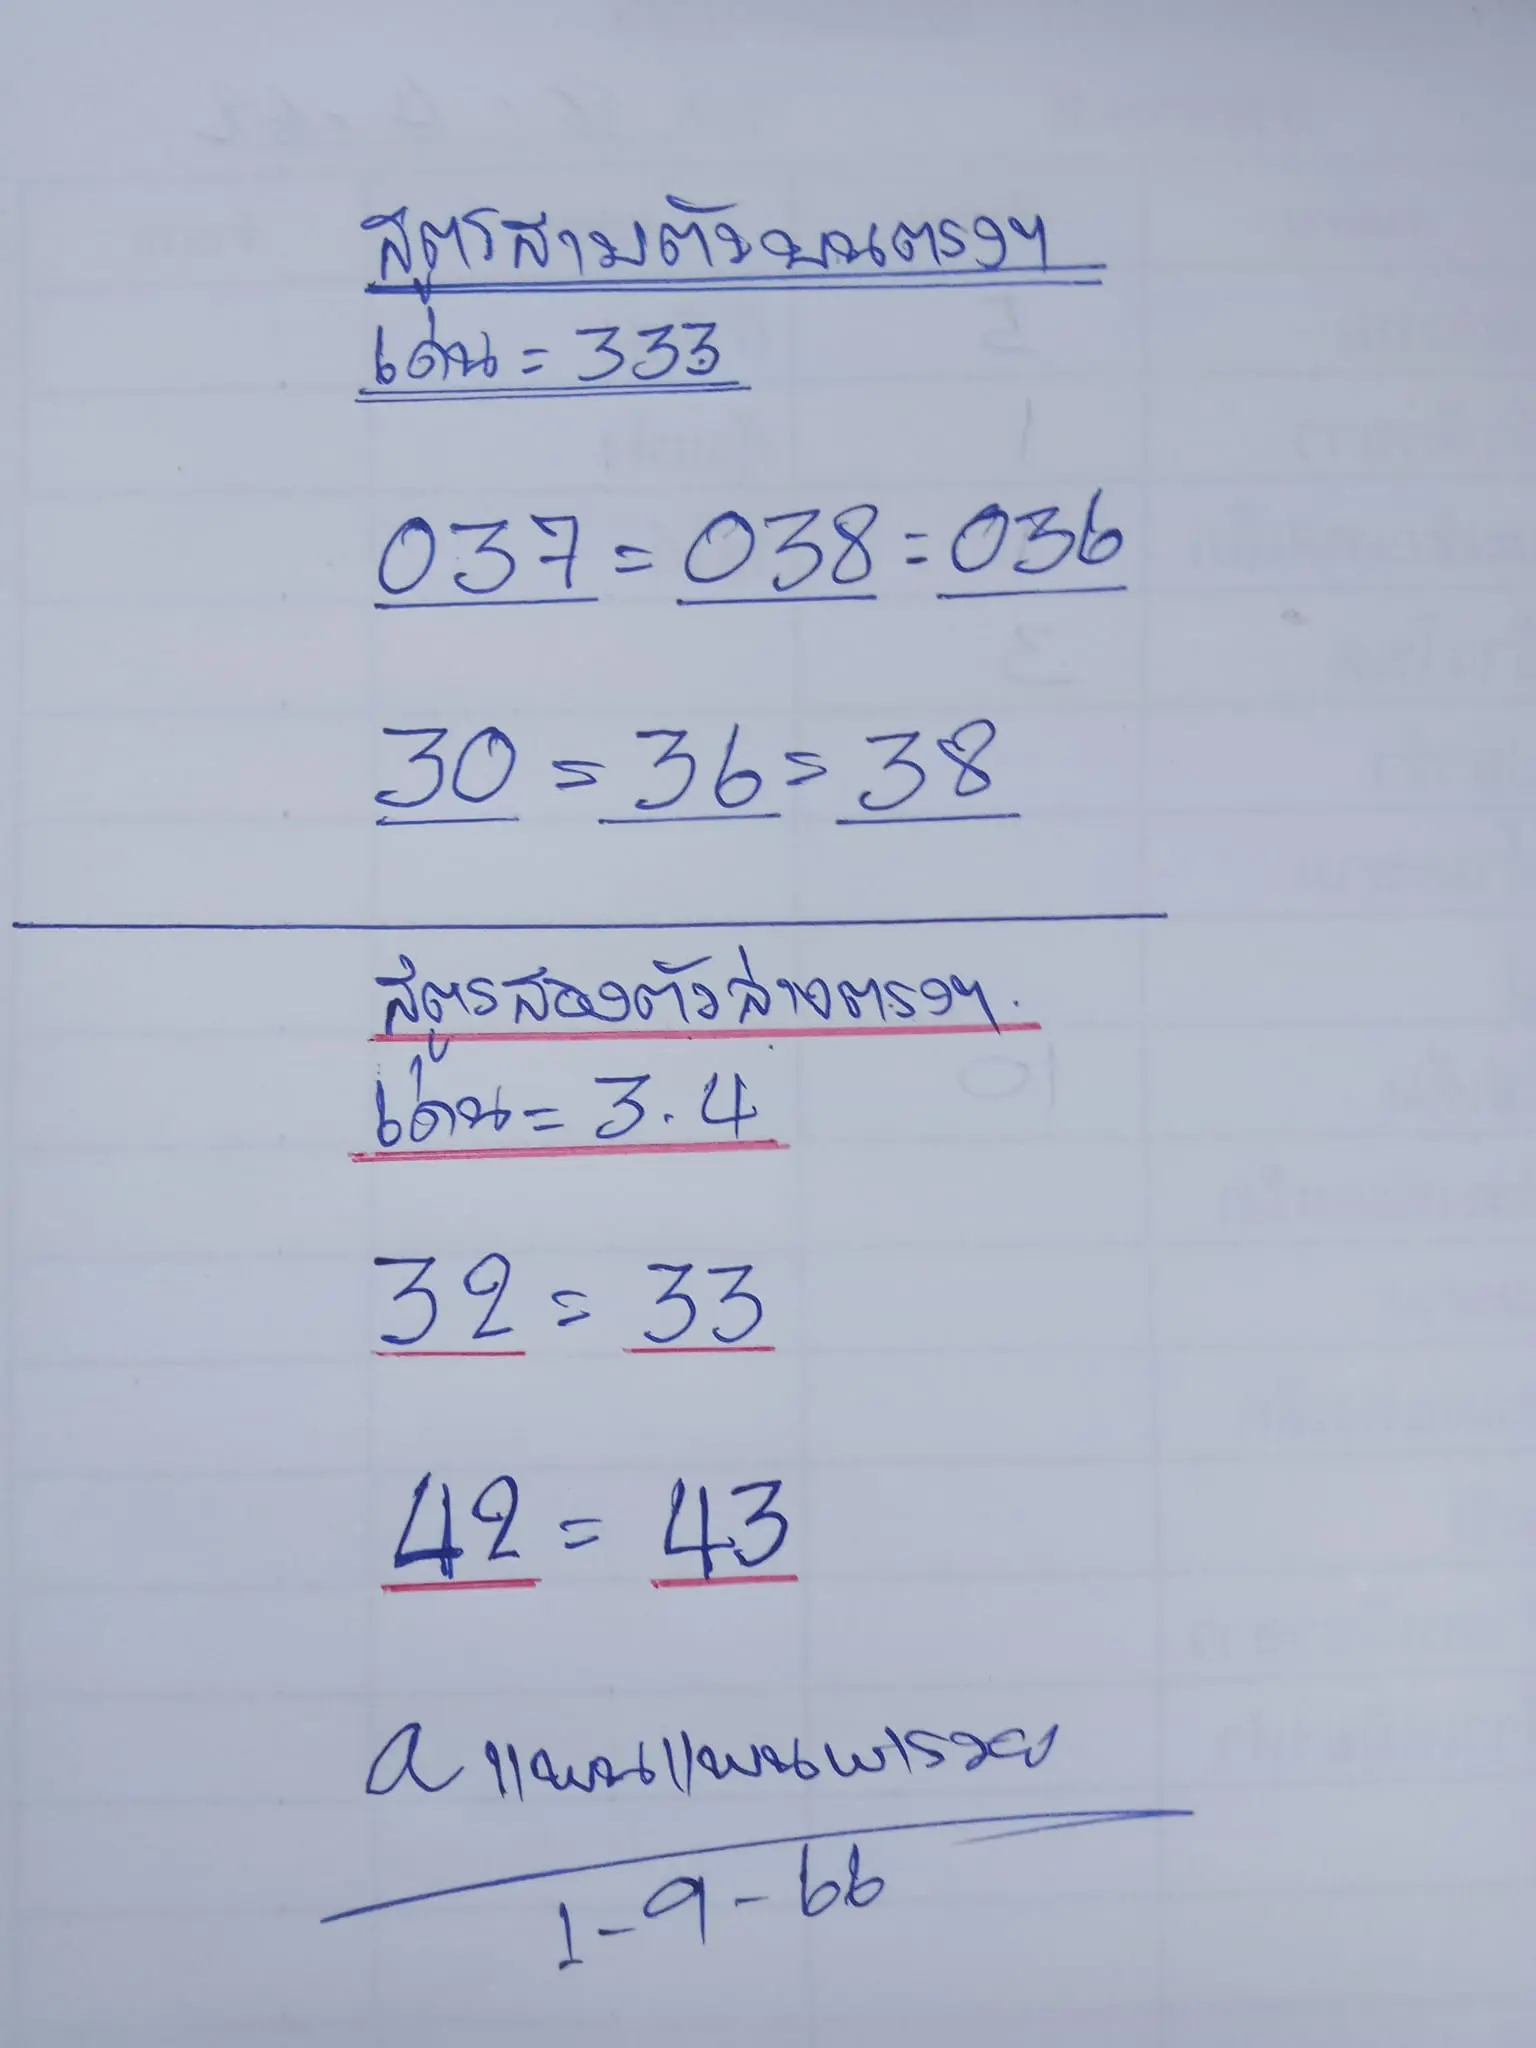 สูตรสามตัวบนตรงๆ
เด่น = 333
037 = 038 = 036
30 = 36 = 38
สูตรสองตัวล่างตรงๆ.
เด่น = 3.4
32 = 33
42 = 43
a แมนแมนพารวย
1-9-66